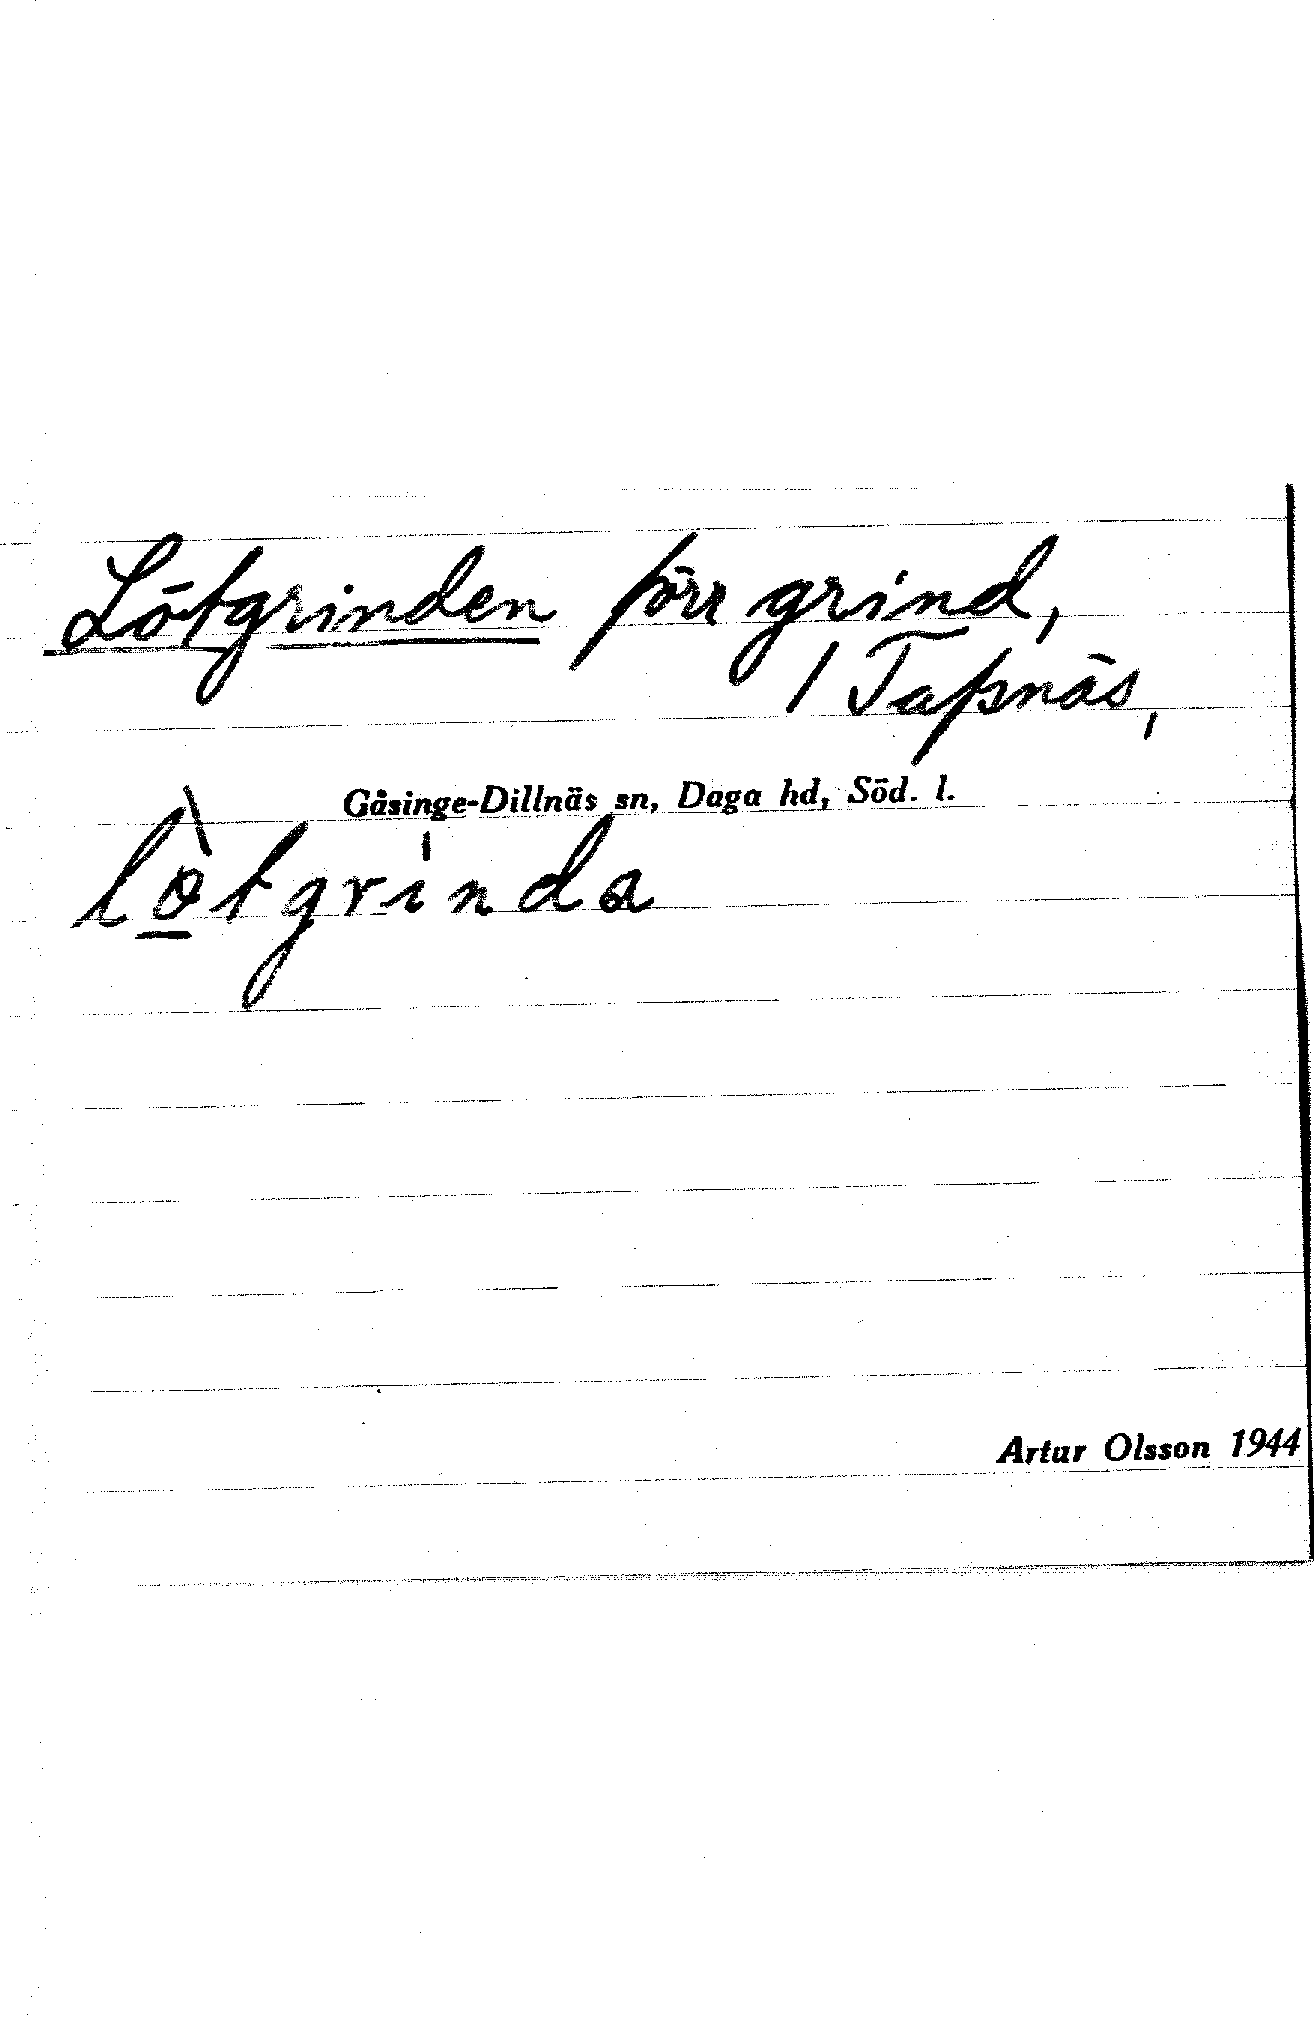 Lötgrinden förr grind,
/ Tapnäs,
Gåsinge-Dillnäs sn, Daga hd, Söd. l.
lø̲̀tgrinda
Artur Olsson 1944